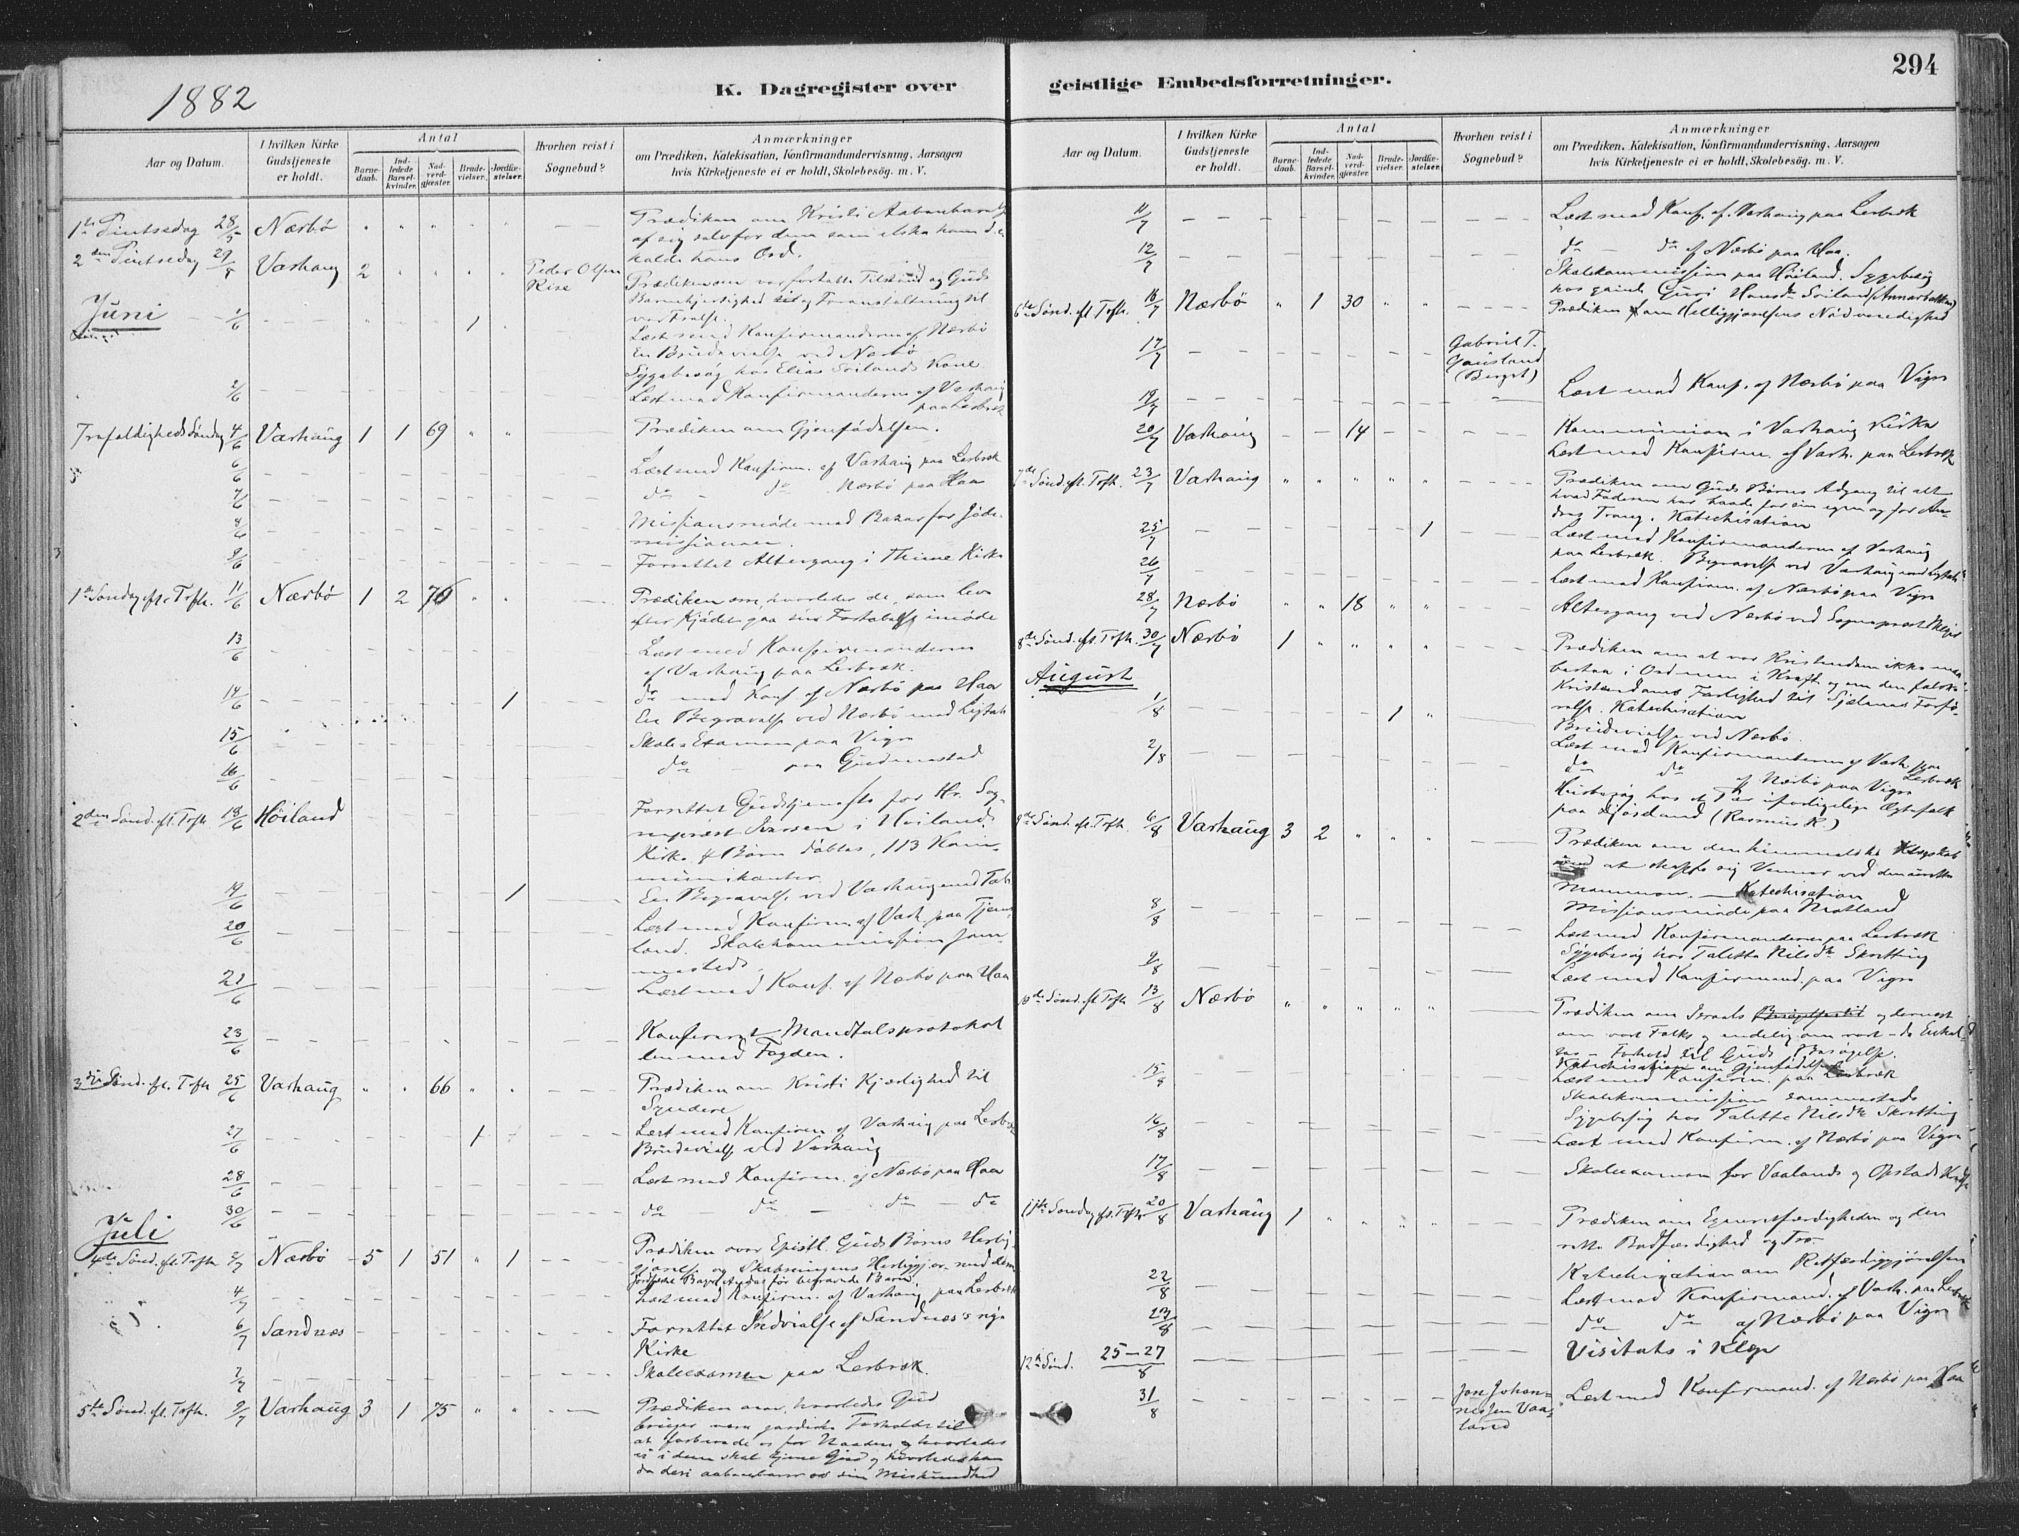 1882
K. Dagregister over
geistlige Embedsforretninger.
294
Aar og Datum.
I hvilken Kirke Gudstjeneste er holdt.
Antal
Barnedaab.
Indledede Barselkvinder.
Nadverdgjæster.
Brudevielser.
Jordfæstelser.
Hvorhen reist i Sognebud?
Anmærkninger
om Prædiken, Katekisation, Konfirmandundervisning, Aarsagen
hvis Kirketjeneste ei er holdt, Skolebesøg. m. V.
1ste Pintsedag 28/5 Nærbø " " " " " Prædiken om Kristi Aabenbarelse
af sig selv for dem som elske ham og
holde hans Ord.
2den Pintsedag 29/5 Varhaug 2 " " " " Peder Olsen Rise
Prædiken om vor fortabte Tilstand og Guds
Barmhjertighed og Foranstaltning til
vor Frelse.
Juni 1/6 1 Læst med Konfirmanderne af Nærbø
En Brudevielse ved Nærbø
Sygebesøg hos Elias Soilands Kone
2/6 Læst med Konfirmanderne af Varhaug
paa Lerbræk
Trefoldigheds Søndag 4/6 Varhaug 1 1 69 " " Prædiken om Gjenfødelsen.
6/6 Læst med Konfirm. af Varhaug paa Lerbræk
7/6 do - do Nærbø paa Haa
8/6 Missionsmøde med Bazar for Jødemissionen.
9/6 Forrettet Altergang i Thime Kirke
1ste Søndag efter Trefh. 11/6 Nærbø 1 2 76 " " Prædiken om, hvorledes de, som leve
efter Kjødet gaa sin Fortabelse imøde
13/6 Læst med Konfirmanderne
af Varhaug paa Lerbræk.
14/6 1 do med Konf. af Nærbø paa Haa
En Begravelse ved Nærbø med Ligtale
15/6 Skole Examen paa Vigre
16/6 do - paa Gudmestad
2den Sønd. eft. Trefh 18/6 Höiland Forrettet Gudstjeneste for Hr. Sogneprest Iversen i Höilands
Kirke 4 Børn døbtes, 113 Kommunikanter.
19/6 1 En Begravelse ved Varhaug med Tale
20/6 Læst med Konfirm. af Varh. paa
Skolekommission sammesteds.
21/6 Læst med Konf. af Nærbø paa Haa
23/6 Konfereret Mandtalsprotokollen med Fogden.
3die Sönd. eft. Trefh 25/6 Varhaug " " 66 " " Prædiken om Kristi Kjærlighed til
Syndere
27/6 1 Læst med Konfirm. af Varhaug paa Lerbræk
Brudevielse ved Varhaug
28/6 Læst med Konfirm. af Nærbø paa Haa
30/6 do - do - do - do
Juli
4de Sönd. eft. Trefh 2/7 Nærbø 5 1 51 " 1 Prædiken over Epistl. Guds Børns Herliggjørelse og Skabningens Herliggjør. med dem
4/7 Læst med Konfirm. af Varhaug paa Lerbræk
6/7 Sandnæs Forrettet Indvielse af Sandnæs's nye
Kirke
7/7 Skoleexamen paa Lerbræk.
5te Sönd. eft. Trefh. 9/7 Varhaug 3 1 75 " " Prædiken om, hvorledes Gud
Aar og Datum.
I hvilken Kirke Gudstjeneste er holdt.
Antal
Barnedaab.
Indledede Barselkvinder.
Nadverdgjæster.
Brudevielser.
Jordfæstelser.
Hvorhen reist i Sognebud?
Anmærkninger
om Prædiken, Katekisation, Konfirmandundervisning, Aarsagen
hvis Kirketjeneste ei er holdt, Skolebesøg. m. V.
11/7 Læst med Konf. af Varhaug paa Lerbræk
12/7 do - do af Nærbø paa Haa.
Skolekommission paa Höiland. Sygebesög
6te Sönd. eft. Trefh. 16/7 Nærbö " 1 30 " " Prædiken om Helliggjørelsens Nödvendighed
17/7 Gabriel T.
19/7 Læst med Konf. af Nærbø paa Vigre
20/7 Varhaug 14 Kommunion i Varhaug Kirke
Læst med Konfirm. af Varh. paa Lerbræk
7de Sönd. eft. Trefh. 23/7 Varhaug " " " " " Prædiken om Guds Børns Adgang til alt
hvad Faderen har baade for sin egen og for Andres Trang. Katechisation
25/7 1 Læst med Konfirmanderne af Varhaug
paa Lerbræk. Begravelse ved Varhaug med Ligtale
26/7 Læst med Konfirm. af Nærbø paa Vigre
28/7 Nærbø " " 18 " " Altergang ved Nærbø ved Sogneprest
8de Sönd. eft. Trefh. 30/7 Nærbö 1 " " " " Prædiken om at vor Kristendom ikke maa
bestaa i Ord men i Kraft og om den falske
Kristendoms Farlighed til Sjælenes Forførelse. Katechisation
August
1/8 1 " Brudevielse ved Nærbø.
Læst med Konfirmanderne af Varh. paa Lerbræk
2/8 do do af Nærbø paa Vigre
9de Sönd. eft. Trefh. 6/8 Varhaug 3 2 " " " Prædiken om den himmelske Klogskab
at skaffe sig Venner ved den urette
Mammon. - Katechisation
8/8 Missionsmøde paa Motland
Læst med Konfirmanderne paa Lerbræk
Sygebesøg hos Taletta Nilsdtr Skretting
9/8 Læst med Konfirmand. paa Vigre
10de Sönd. eft Trefh 13/8 Nærbø " " " " " Prædiken om Israels og dernæst
om vort Folks og endelig om vort - de Enkeltes - Forhold til Guds Besøgelse.
Katechisation om Gjenfødelse
15/8 Læst med Konfirm. paa Lerbræk
Skolekommission sammesteds
Sygebesög hos Talette Nilsdtr Skretting
16/8 Læst med Konfirm. af Nærbø paa Vigre
17/8 Skoleexamen for Vaalands og Opstads Kreds
11te Søndag eft. Trefh 20/8 Varhaug 1 " " " " Prædiken om Egenretfærdigheden og den
rette Bodfærdighed og Tro.
Katechisation om Retfærdiggjørelsen
22/8 Læst med Konfirmand. af Varh. paa Lerbræk
23/8 do do af Nærbø paa Vigre
12te Sönd. 25-27/8 Visitats i Klep
31/8 Jon Johannessen Vaaland Læst med Konfirmand. af Nærbø paa Haa